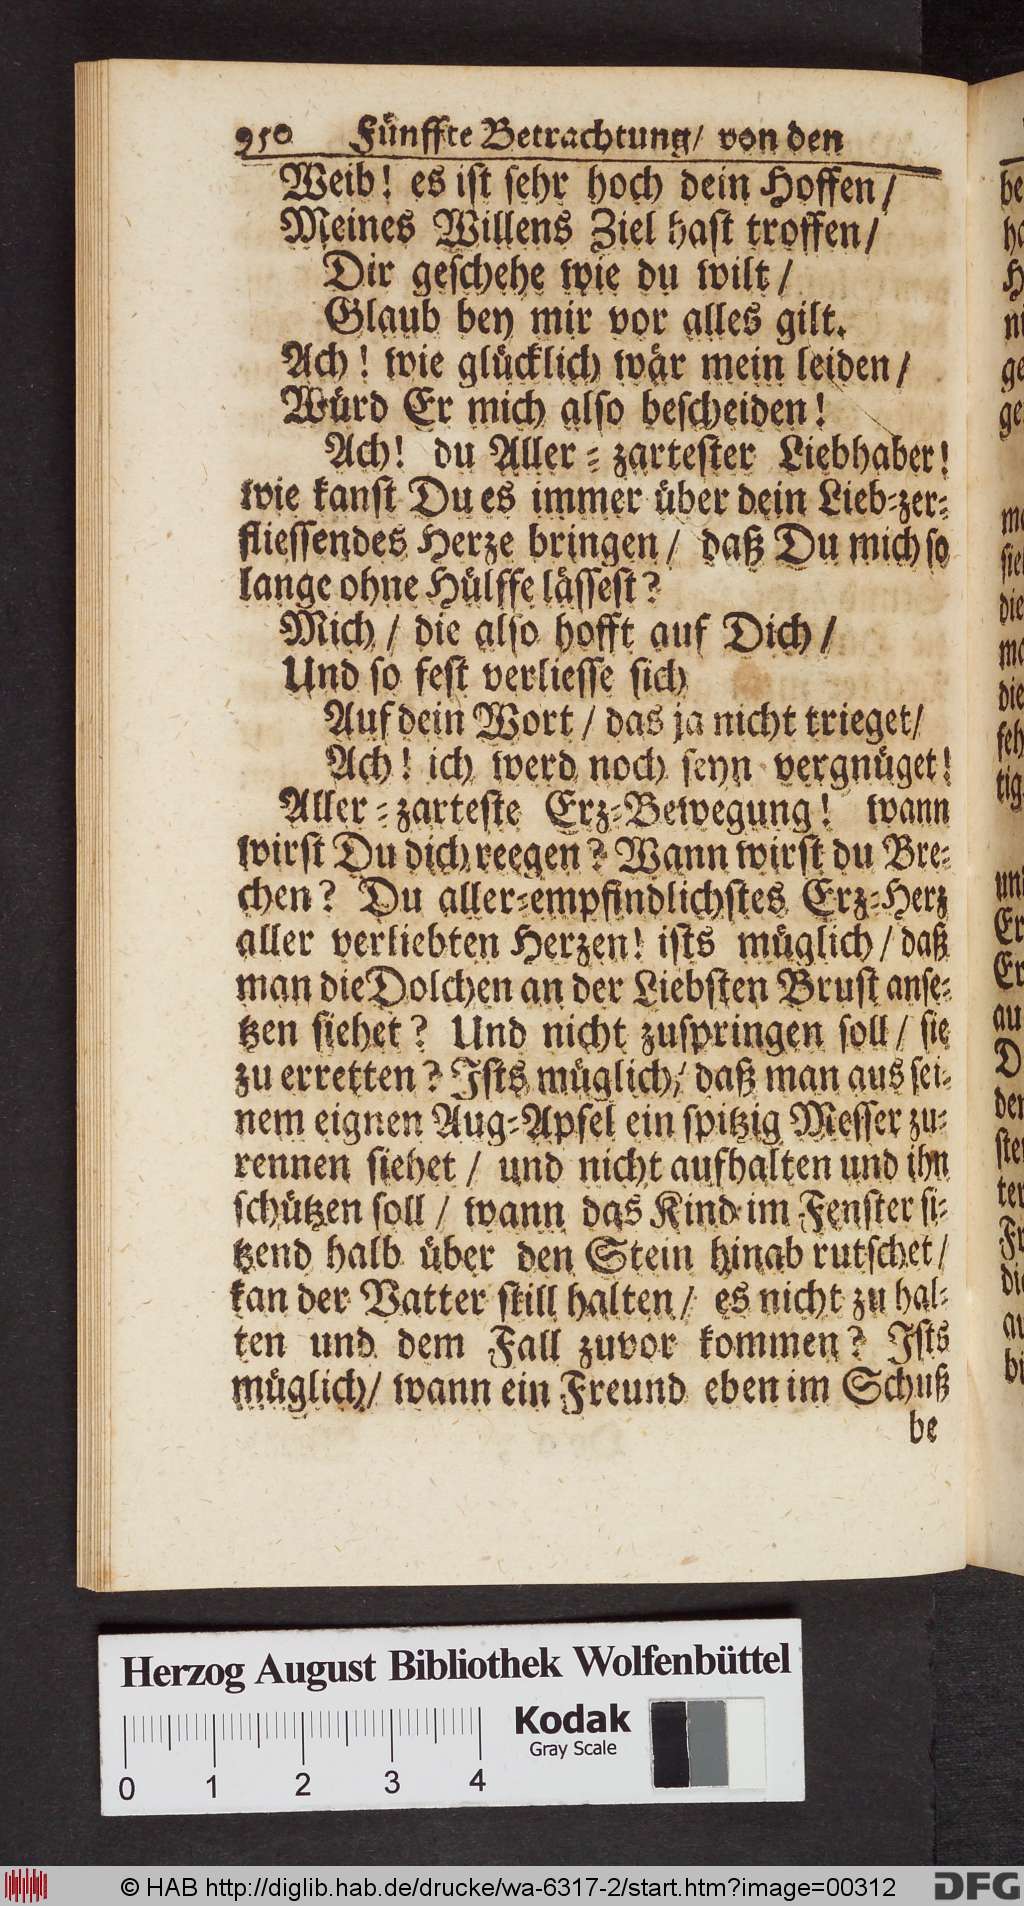 950 Fünffte Betrachtung/ von den
Weib! es ist sehr hoch dein Hoffen/
Meines Willens Ziel hast troffen/
Dir geschehe wie du wilt/
Glaub bey mir vor alles gilt.
Ach! wie glücklich wär mein leiden/
Würd Er mich also bescheiden!
Ach! du Aller-zartester Liebhaber!
wie kanst Du es immer über dein Lieb-zer-
fliessendes Herze bringen/ daß Du mich so
lange ohne Hülffe lässest?
Mich/ die also hofft auf Dich/
Und so fest verliesse sich
Auf dein Wort/ das ja nicht trieget/
Ach! ich werd noch seyn vergnüget!
Aller-zarteste Erz-Bewegung! wann
wirst Du dich reegen? Wann wirst du Bre-
chen? Du aller-empfindlichstes Erz-Herz
aller verliebten Herzen! ists müglich/ daß
man die Dolchen an der Liebsten Brust anse-
tzen siehet? Und nicht zuspringen soll/ sie
zu erretten? Ists müglich/ daß man aus sei-
nem eignen Aug-Apfel ein spitzig Messer zu-
rennen siehet/ und nicht aufhalten und ihn
schützen soll/ wann das Kind im Fenster si-
tzend halb über den Stein hinab rutschet/
kan der Vatter still halten/ es nicht zu hal-
ten und dem Fall zuvor kommen? Ists
müglich/ wann ein Freund eben im Schuß
be
Herzog August Bibliothek Wolfenbüttel
Kodak
Gray Scale
0 1 2 3 4
© HAB http://diglib.hab.de/drucke/wa-6317-2/start.htm?image=00312
DFG